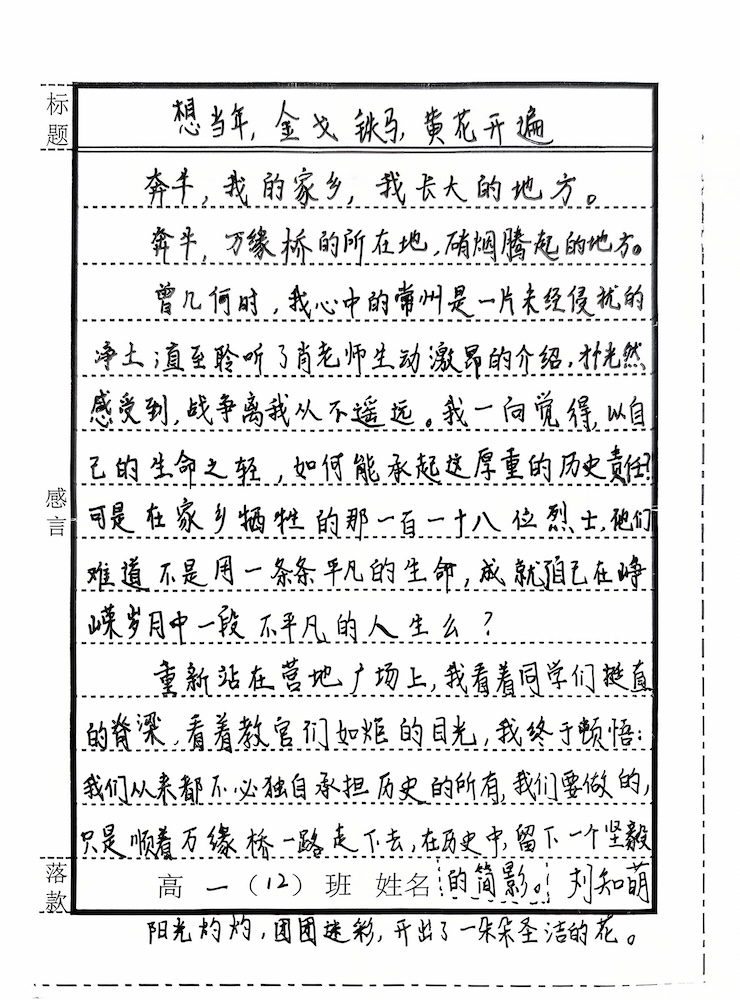 标题
想当年,金戈铁马,黄花开遍
奔牛,我的家乡,我长大的地方。
奔牛,万缘桥的所在地,硝烟腾起的地方。
曾几何时,我心中的常州是一片未经侵扰的
净土;直至聆听了肖老师生动激昂的介绍,才恍然
感受到,战争离我从不遥远。我一向觉得,以自
己的生命之轻,如何能承起这厚重的历史责任?
可是在家乡牺牲的那一百一十八位烈士,他们
难道不是用一条条平凡的生命,成就自己在峥
嵘岁月中一段不平凡的人生么?
感言
重新站在营地广场上,我看着同学们挺直
的脊梁,看着教官们如炬的目光,我终于顿悟:
我们从来都不必独自承担历史的所有,我们要做的,
只是顺着万缘桥一路走下去,在历史中,留下一个坚毅
的简影。
落款
高一(12)班 姓名 刘知萌
阳光灼灼,团团迷彩,开出了一朵朵圣洁的花。